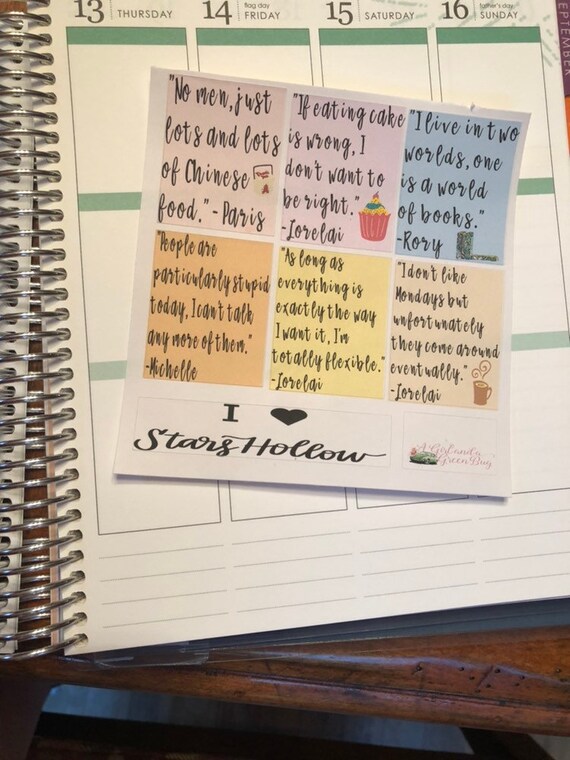 13 THURSDAY
14 flag day FRIDAY
15 SATURDAY
16 father's day SUNDAY
"No men, just
lots and lots
of Chinese
food." -Paris
"If eating cake
is wrong, I
don't want to
be right."
-Lorelai
"I live in two
worlds, one
is a world
of books."
-Rory
"People are
particularly stupid
today, I can't talk
any more of them.
-Michelle
"As long as
everything is
exactly the way
I want it, I'm
totally flexible."
-Lorelai
"I don't like
Mondays but
unfortunately
they come around
eventually."
-Lorelai
I ♥
Stars Hollow
A Girl and a
Green Bug